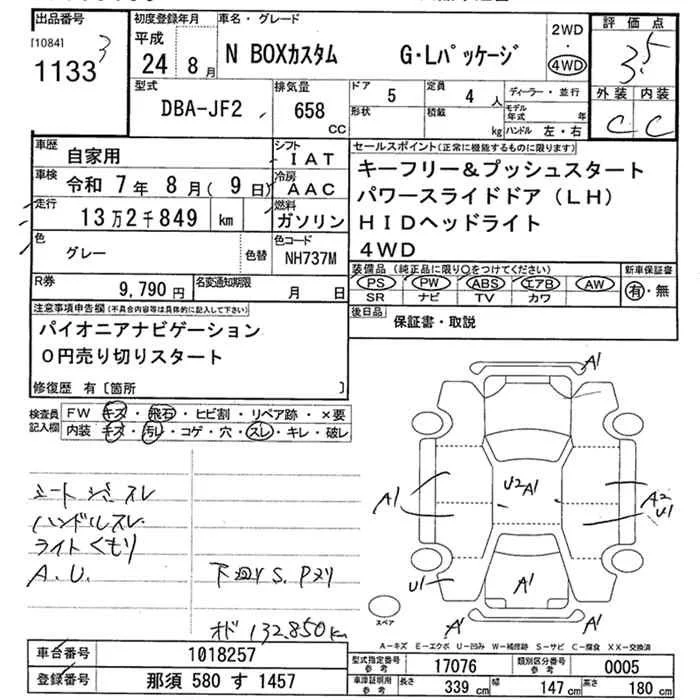 出品番号
[1084]
1133
3
初度登録年月
平成
24 8月
車名・グレード
N BOXカスタム G・Lパッケージ
2WD
・
4WD
評価点
3.5
外装 内装
C C
型式
DBA-JF2
排気量
658
CC
ドア
5
定員
4 人
形状
積載
kg
ディーラー・並行
モデル年式 年
ハンドル 左・右
車歴
自家用
シフト
IAT
車検
令和 7年 8月( 9日)
冷房
AAC
走行
13万2千849 km
燃料
ガソリン
色
グレー
色替
色コード
NH737M
R券
9,790円
名変通知期限
月 日
セールスポイント(正常に機能するものに限ります)
キーフリー&プッシュスタート
パワースライドドア(LH)
HIDヘッドライト
4WD
装備品(純正品に限り○をつけてください)
PS PW ABS エアB AW
SR ナビ TV カワ
新車保証書
有・無
後日品
保証書・取説
注意事項申告欄(不具合内容等は具体的に記入して下さい)
パイオニアナビゲーション
0円売り切りスタート
修復歴 有[箇所 ]
検査員記入欄
FW キズ・飛石・ヒビ割・リペア跡・×要
内装 キズ・汚レ・コゲ・穴・スレ・キレ・破レ
シートジミスレ
ハンドルスレ
ライトくもり
A.U.
下回りS.Pヌリ
オド132,850km
A1
A1
U2 A1
A2
U1
U1
A1
A1
A1
スペア
A-キズ E-エクボ U-凹み W-補修跡 S-サビ C-腐食 XX-交換済
車台番号
1018257
登録番号
那須 580 す 1457
型式指定番号
参考
17076
類別区分番号
参考
0005
車庫証明用
参考
長さ 339 cm 幅 147 cm 高さ 180 cm